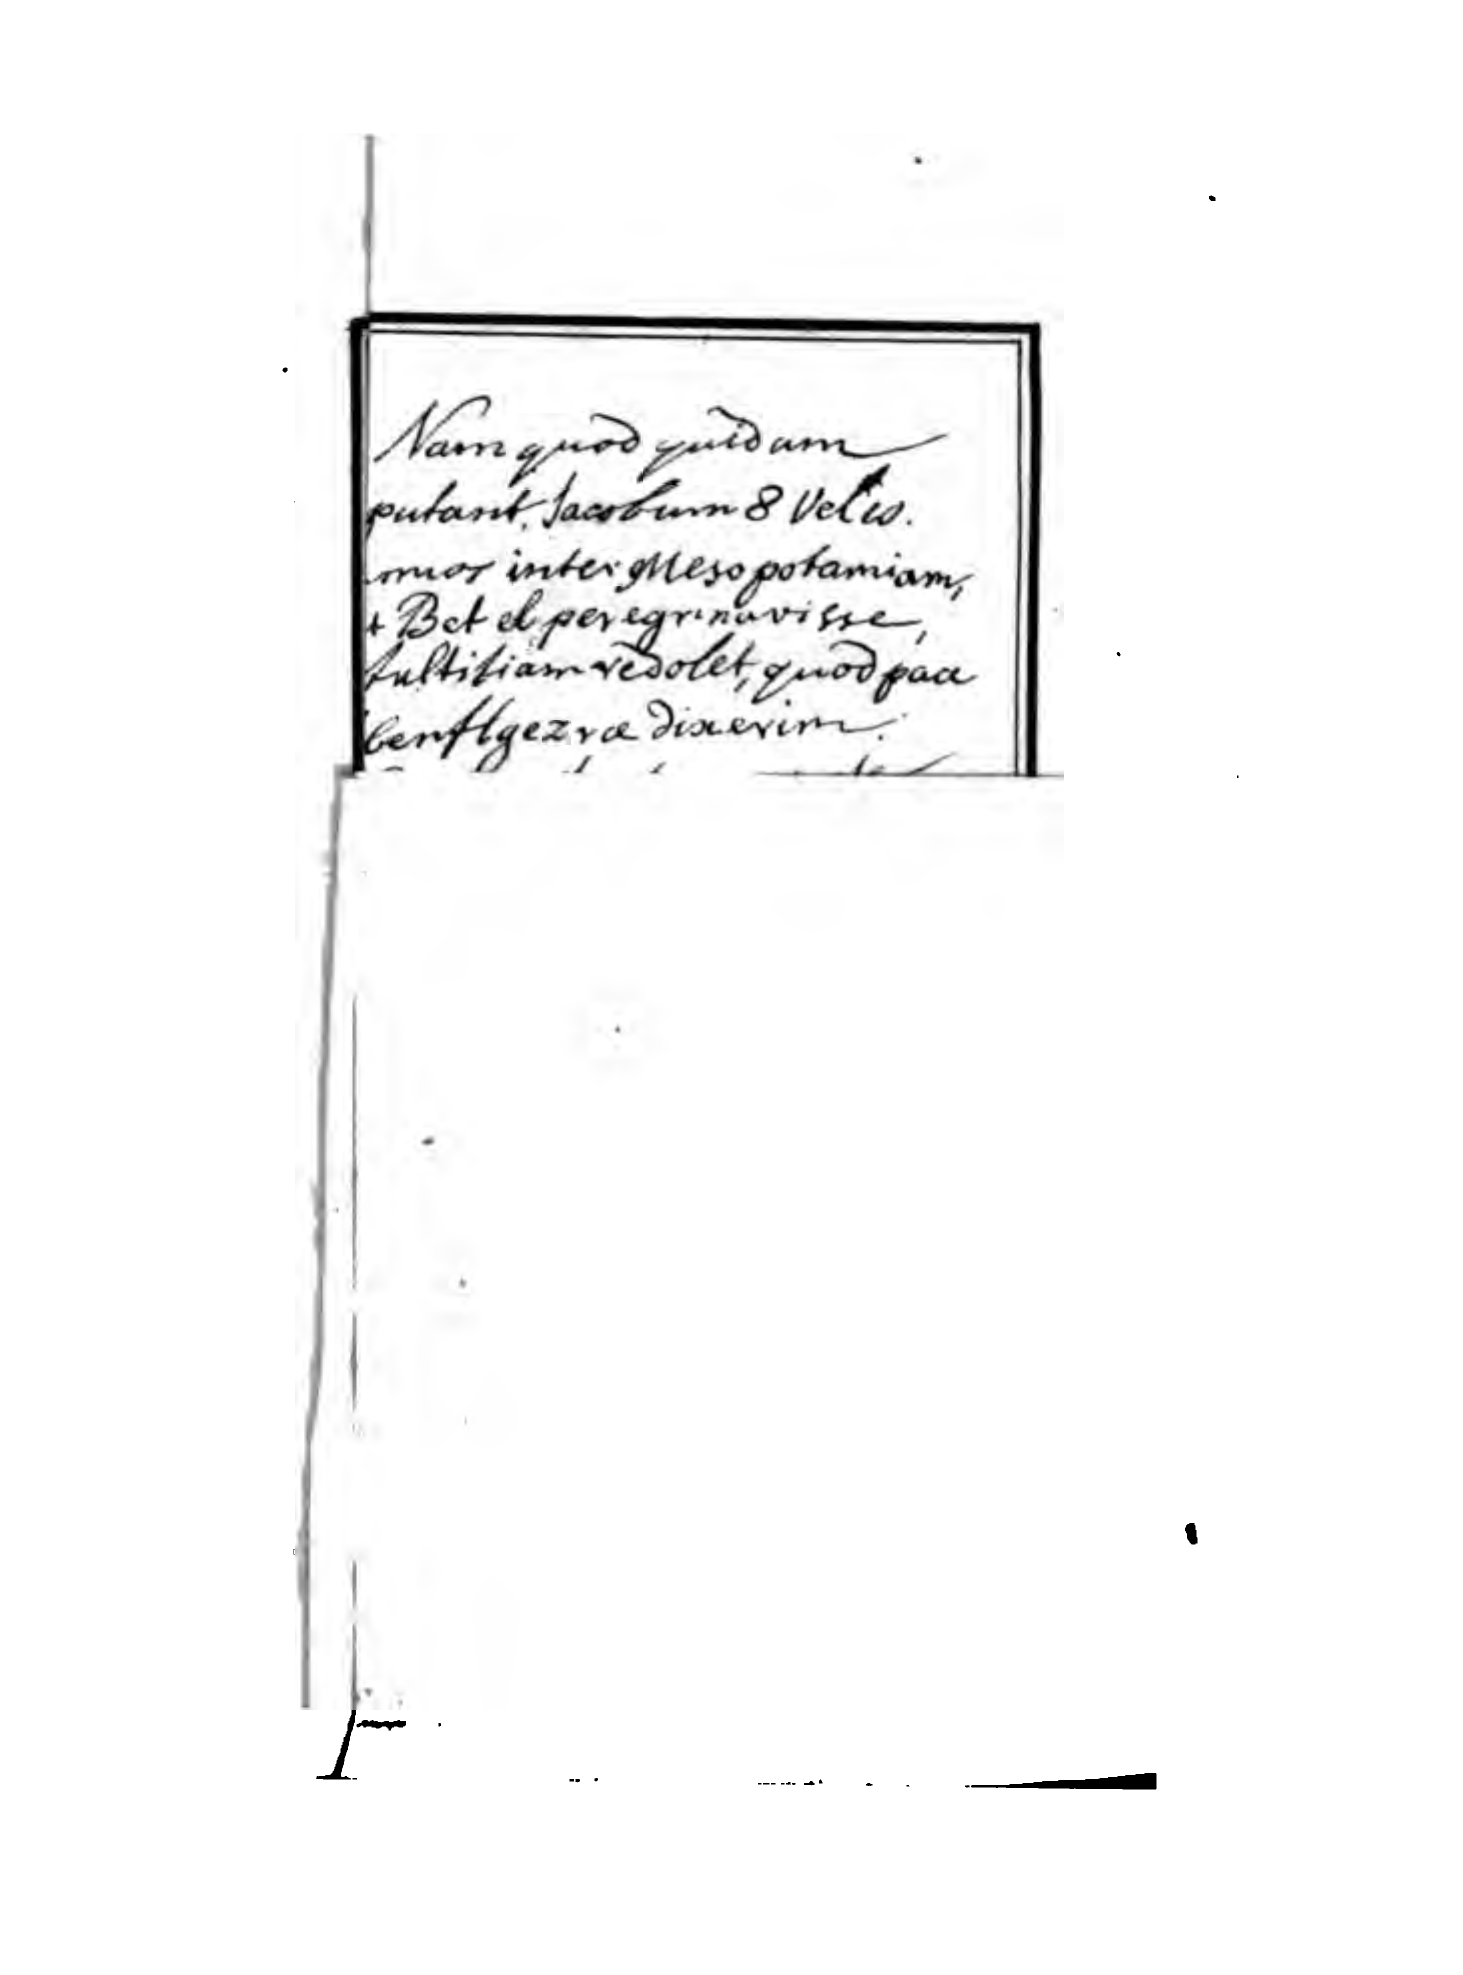 Nam quod quidam
putant, Jacobum 8 Vel is.
nnos inter Mesopotamiam,
t Bet el peregrinavisse,
tultitiam redolet, quod pace
ben Agezræ dixerim.